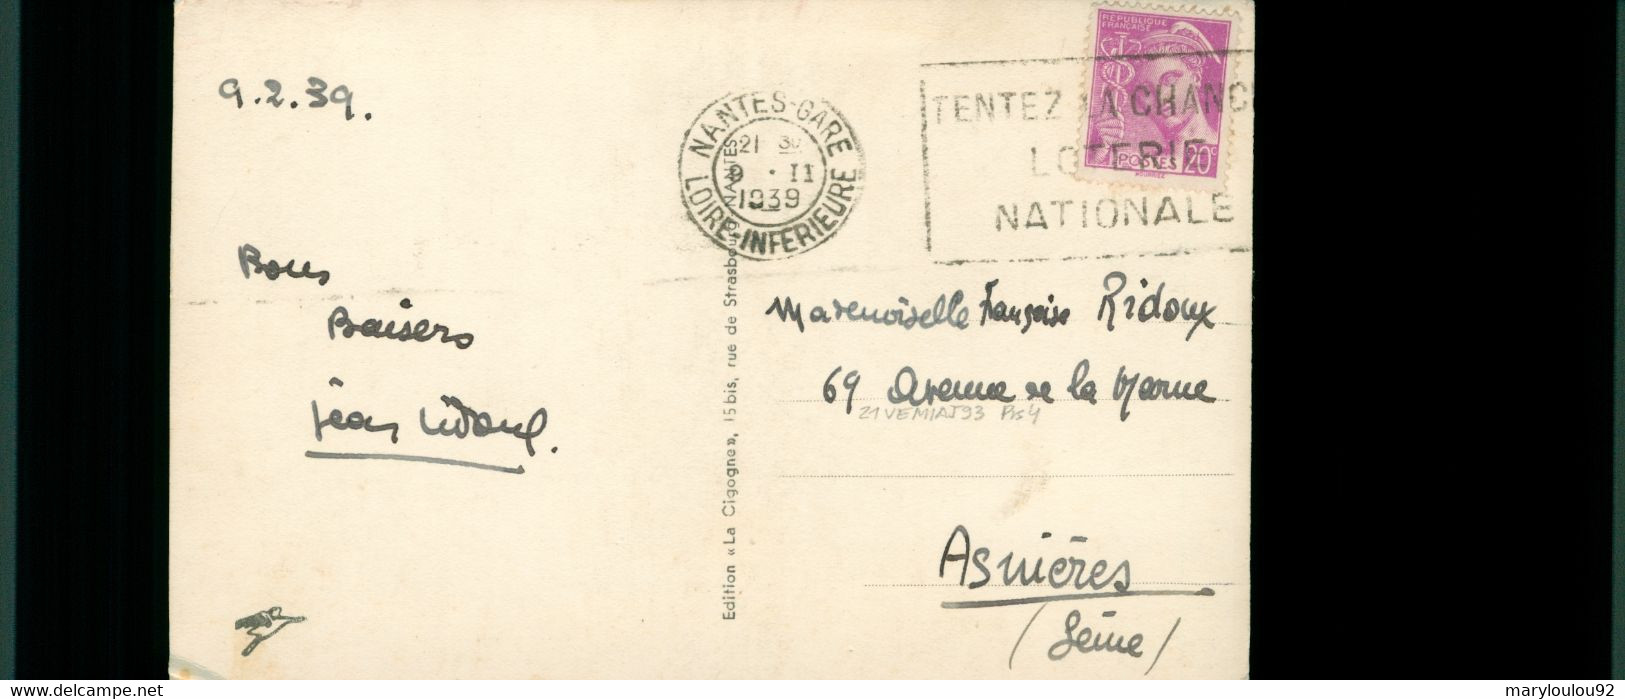 9.2.39.
Bons
Baisers
Jean
RÉPUBLIQUE
FRANÇAISE
POSTES 20c
NANTES-GARE
21 30
9 · II
1939
LOIRE-INFERIEURE
TENTEZ LA CHANCE
LOTERIE
NATIONALE
Edition «La Cigogne», 15 bis, rue de Strasbourg NANTES
Mademoiselle Françoise Ridoux
69 Avenue de la Marne
21VEMIAJ93
Asnières
(Seine)
maryloulou92